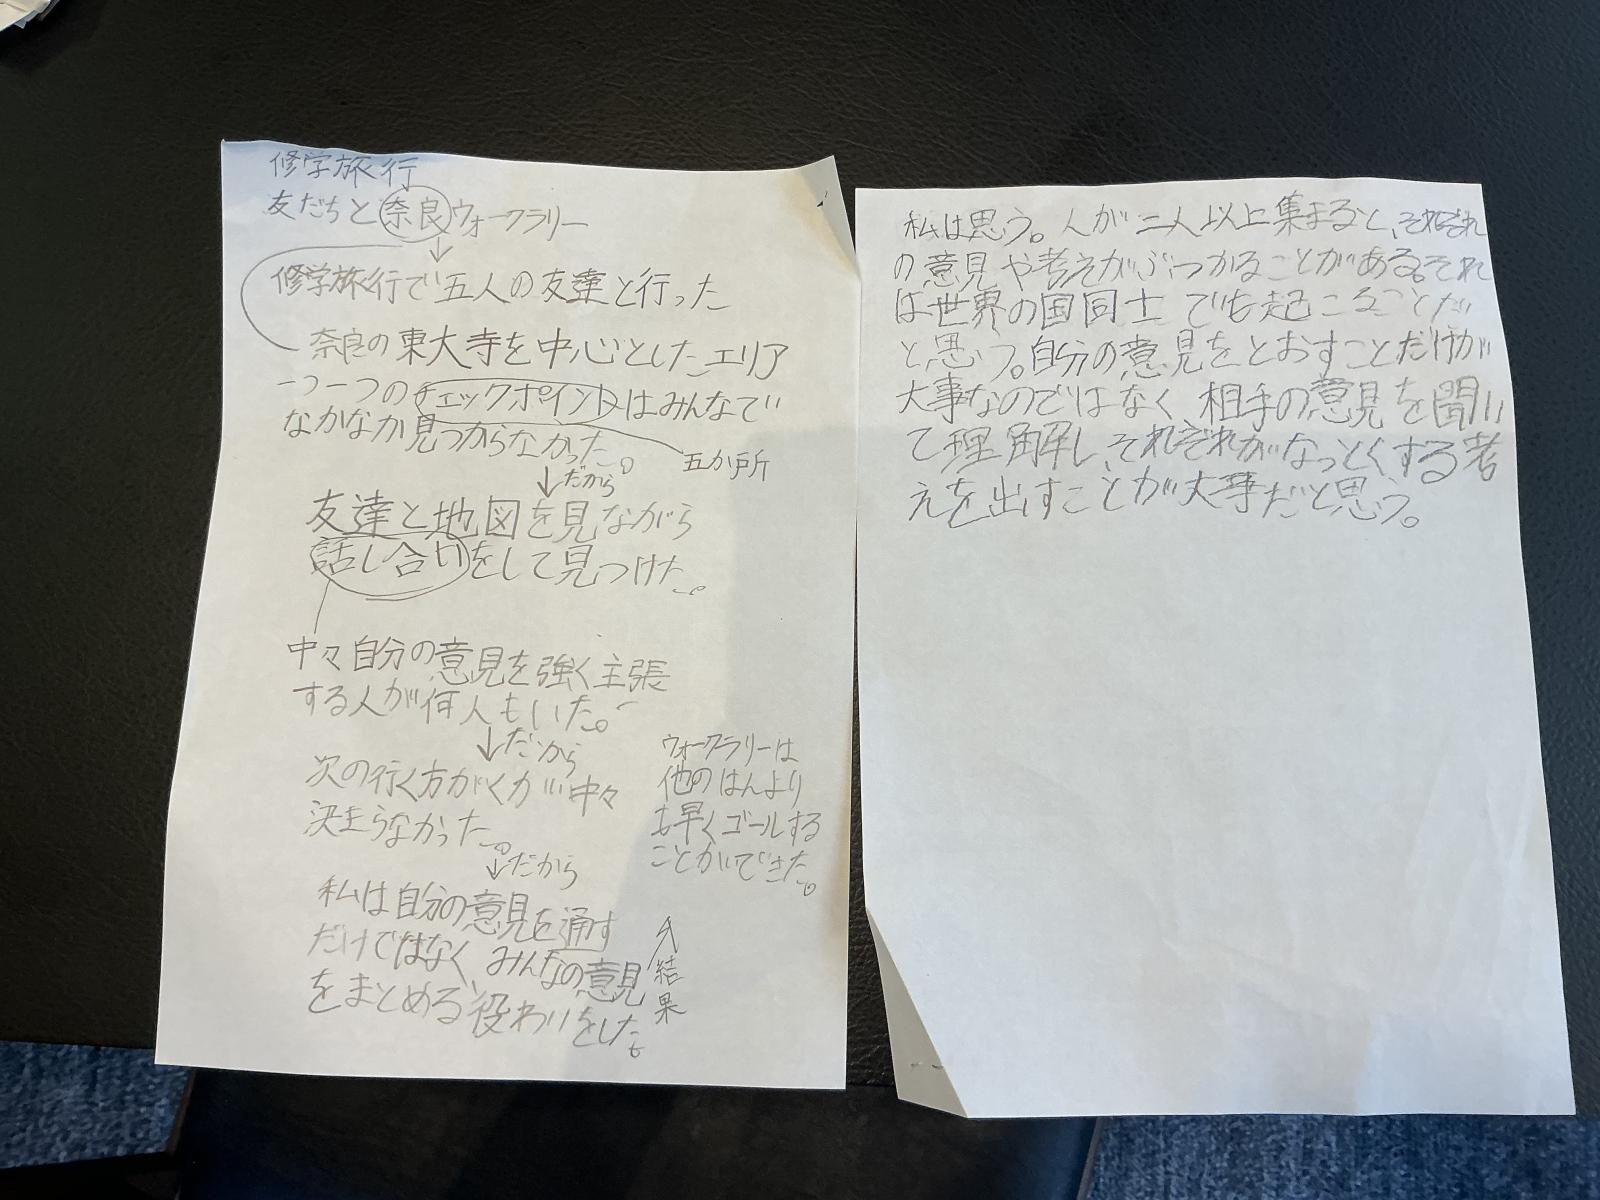 修学旅行
友だちと奈良ウォークラリー
修学旅行で五人の友達と行った
奈良の東大寺を中心としたエリア
一つ一つのチェックポイントはみんなで
なかなか見つからなかった。
五か所
だから
友達と地図を見ながら
話し合いをして見つけた。
中々自分の意見を強く主張
する人が何人もいた。
だから
次の行く方がくが中々
決まらなかった。
だから
私は自分の意見を通す
だけではなく、みんなの意見
をまとめる役わりをした。
結果
ウォークラリーは
他のはんより
も早くゴールする
ことができた。
私は思う。人が二人以上集まると、それぞれ
の意見や考えがぶつかることがある。それ
は世界の国同士でも起こることだ
と思う。自分の意見をとおすことだけが
大事なのではなく相手の意見を聞い
て理解し、それぞれがなっとくする考
えを出すことが大事だと思う。